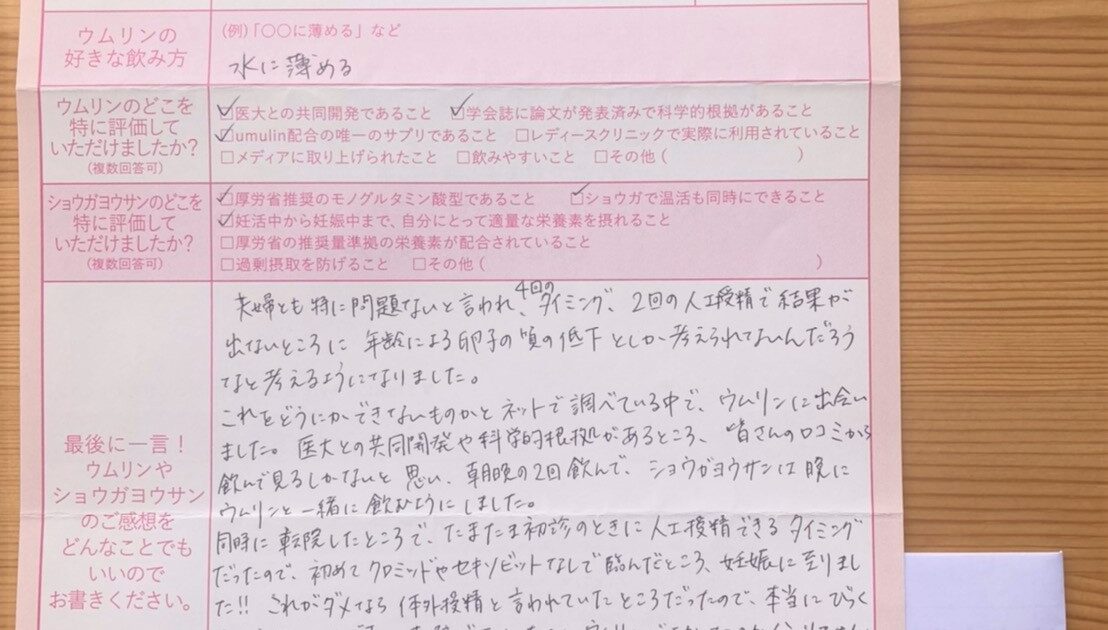 ウムリンの
好きな飲み方
(例)「○○に薄める」など
水に薄める
ウムリンのどこを
特に評価して
いただけましたか?
(複数回答可)
☑医大との共同開発であること ☑学会誌に論文が発表済みで科学的根拠があること
☑umulin配合の唯一のサプリであること □レディースクリニックで実際に利用されていること
□メディアに取り上げられたこと □飲みやすいこと □その他( )
ショウガヨウサンのどこを
特に評価して
いただけましたか?
(複数回答可)
☑厚労省推奨のモノグルタミン酸型であること ☑ショウガで温活も同時にできること
☑妊活中から妊娠中まで、自分にとって適量な栄養素を摂れること
□厚労省の推奨量準拠の栄養素が配合されていること
□過剰摂取を防げること □その他( )
最後に一言!
ウムリンや
ショウガヨウサン
のご感想を
どんなことでも
いいので
お書きください。
夫婦とも特に問題ないと言われ、4回のタイミング、2回の人工授精で結果が
出ないところに 年齢による卵子の質の低下としか考えられないんだろう
なと考えるようになりました。
これをどうにかできないものかとネットで調べている中で、ウムリンに出会い
ました。医大との共同開発や科学的根拠があるところ、皆さんの口コミから
飲んで見るしかないと思い、朝晩の2回飲んで、ショウガヨウサンは晩に
ウムリンと一緒に飲むようにしました。
同時に転院したところで、たまたま初診のときに人工授精できるタイミング
だったので、初めてクロミッドやセキソビットなしで臨んだところ、妊娠に至りまし
た!! これがダメなら体外授精と言われていたところだったので、本当にびっく